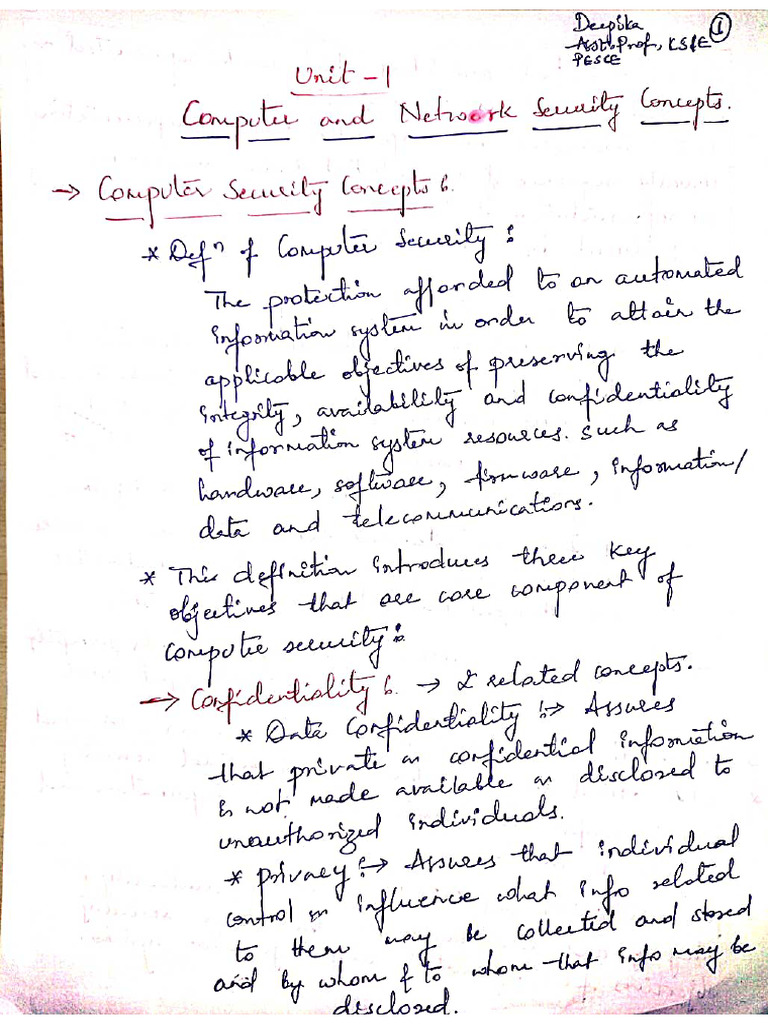 Deepika ①
Asst. Prof, KS&E
PESCE
Unit - 1
Computer and Network Security Concepts.
→ Computer Security Concepts :
* Defⁿ of Computer Security :
The protection afforded to an automated
information system in order to attain the
applicable objectives of preserving the
integrity, availability and confidentiality
of information system resources. Such as
hardware, software, firmware, information/
data and telecommunications.
* This definition introduces three key
objectives that are core component of
computer security :
→ Confidentiality : → 2 related concepts.
* Data Confidentiality :→ Assures
that private or confidential information
is not made available or disclosed to
unauthorized individuals.
* privacy :→ Assures that individual
control or influence what info related
to them may be collected and stored
and by whom & to whom that info may be
disclosed.